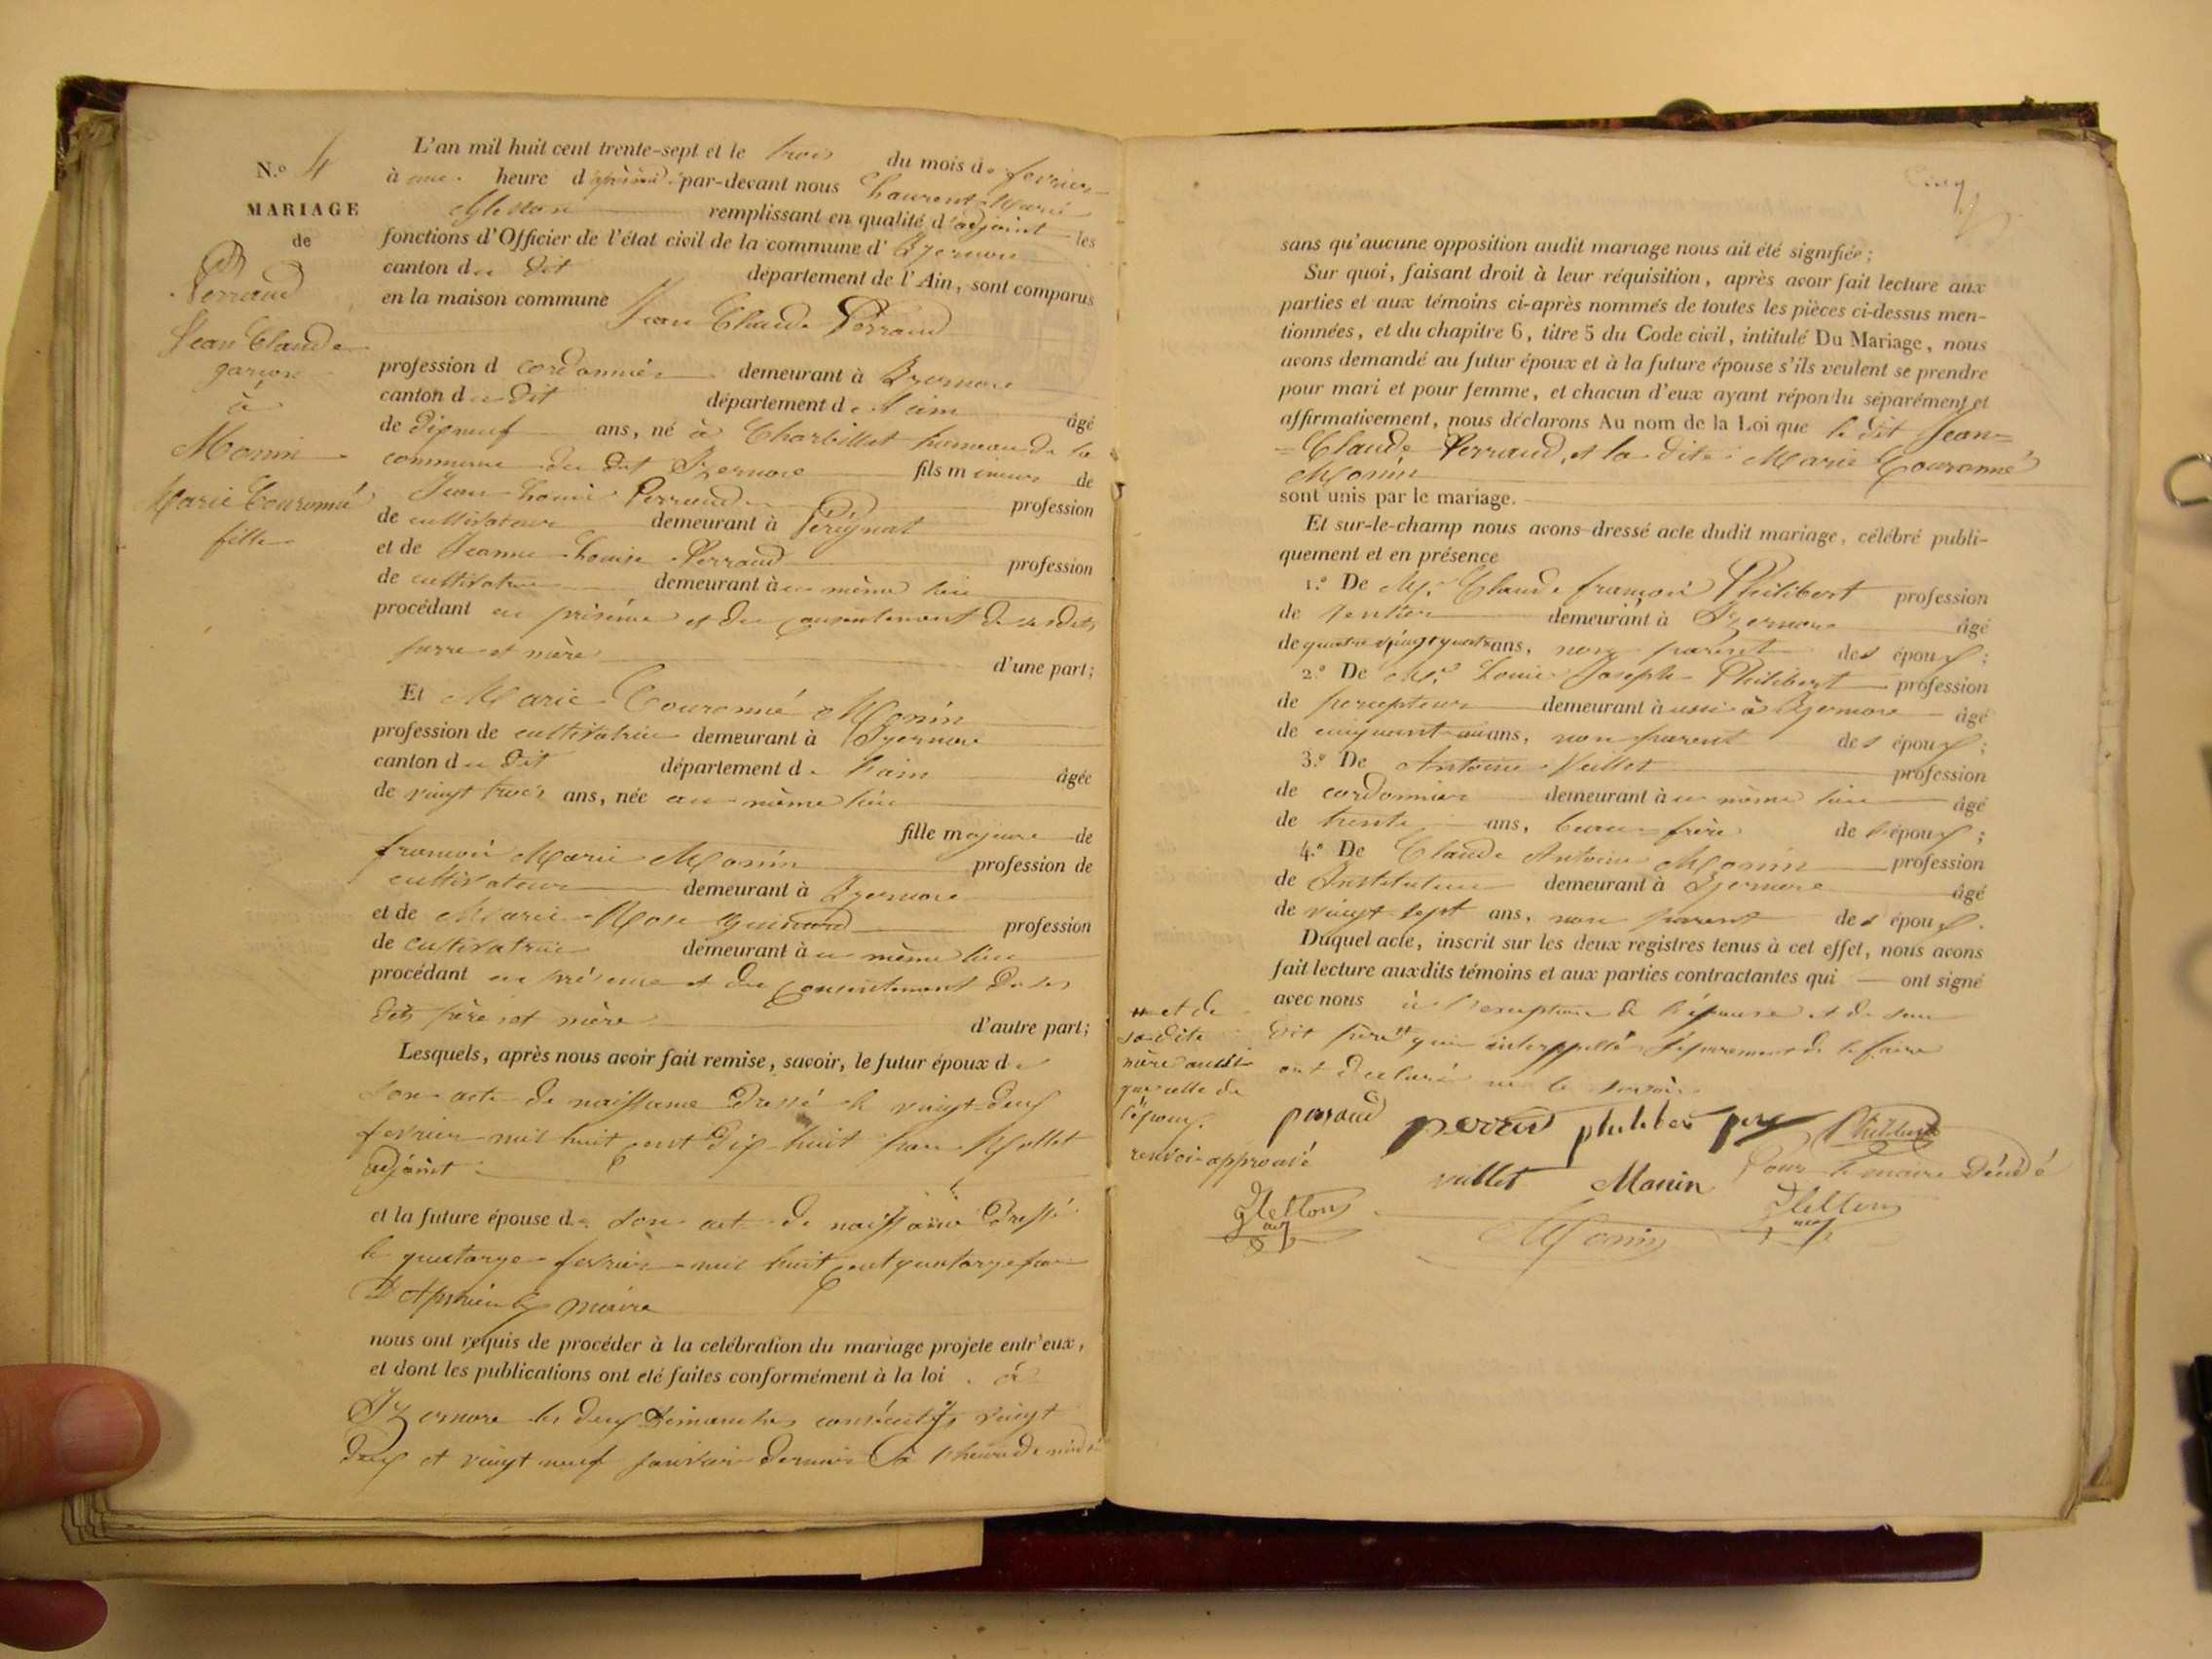 N.º 4
MARIAGE
de
Perraud
Jean Claude
garçon
à
Monin
Marie Couronné
fille
L'an mil huit cent trente-sept et le trois du mois de fevrier
à une heure d'après midi par-devant nous Laurent Marie
remplissant en qualité d'adjoint les
fonctions d'Officier de l'état civil de la commune d' Izernore
canton du dit département de l'Ain, sont comparus
en la maison commune Jean Claude Perraud
profession d cordonnier demeurant à Izernore
canton du dit département de l'ain âgé
de dixneuf ans, né à Charbillet hameau de la
commune du dit Izernore fils mineur de
Jean Louis Perraud profession
de cultivateur demeurant à Perignat
et de Jeanne Louise Perraud profession
de cultivatrice demeurant au même lieu
procédant en présence et du consentement de ses dits
perre et mère d'une part;
Et Marie Couronné Monin
profession de cultivatrice demeurant à Izernore
canton du dit département de Lain âgée
de vingt trois ans, née au même lieu
fille majeure de
françois Marie Monin profession de
cultivateur demeurant à Izernore
et de Marie Rose profession
de cultivatrice demeurant au même lieu
procédant en présence et du consentement de ses
dits père et mère d'autre part;
Lesquels, après nous avoir fait remise, savoir, le futur époux de
son acte de naissance dressé le vingt deux
fevrier mil huit cent dix huit par Mollet
adjoint
et la future épouse de son acte de naissance dressé
le quatorze fevrier mil huit cent quatorze par
maire
nous ont requis de procéder à la celébration du mariage projeté entr'eux,
et dont les publications ont eté faites conformément à la loi à
Izernore les deux dimanches consécutifs vingt
deux et vingt neuf janvier dernier à l'heure de midi
Cinq
sans qu'aucune opposition audit mariage nous ait été signifiée;
Sur quoi, faisant droit à leur réquisition, après avoir fait lecture aux
parties et aux témoins ci-après nommés de toutes les pièces ci-dessus men-
tionnées, et du chapitre 6, titre 5 du Code civil, intitulé Du Mariage, nous
avons demandé au futur époux et à la future épouse s'ils veulent se prendre
pour mari et pour femme, et chacun d'eux ayant répondu séparément et
affirmativement, nous déclarons Au nom de la Loi que le dit Jean=
=Claude Perraud, et la dite Marie Couronné
Monin
sont unis par le mariage.
Et sur-le-champ nous avons dressé acte dudit mariage, célébré publi-
quement et en présence
1.º De Mr. Claude françois Philibert profession
de rentier demeurant à Izernore âgé
de quatre vingt quatre ans, non parent des époux;
2.º De Mr. Louis Joseph Philibert profession
de percepteur demeurant aussi à Izernore âgé
de cinquante ans, non parent des époux;
3.º De Antoine Vuillet profession
de cordonnier demeurant au même lieu âgé
de trente ans, beau frère de l'époux;
4.º De Claude Antoine Monin profession
de Instituteur demeurant à Izernore âgé
de vingt sept ans, non parent des époux.
Duquel acte, inscrit sur les deux registres tenus à cet effet, nous avons
fait lecture auxdits témoins et aux parties contractantes qui ont signé
avec nous à l'exception de l'épouse et de son
dit père # qui interppellés séparement de le faire
ont declaré ne le savoir.
# et de
sa dite
mère ainsi
que celle de
l'époux.
renvoi approuvé
perraud perraud philibert pere Philibert
vuillet Monin Pour le maire décédé
Monin